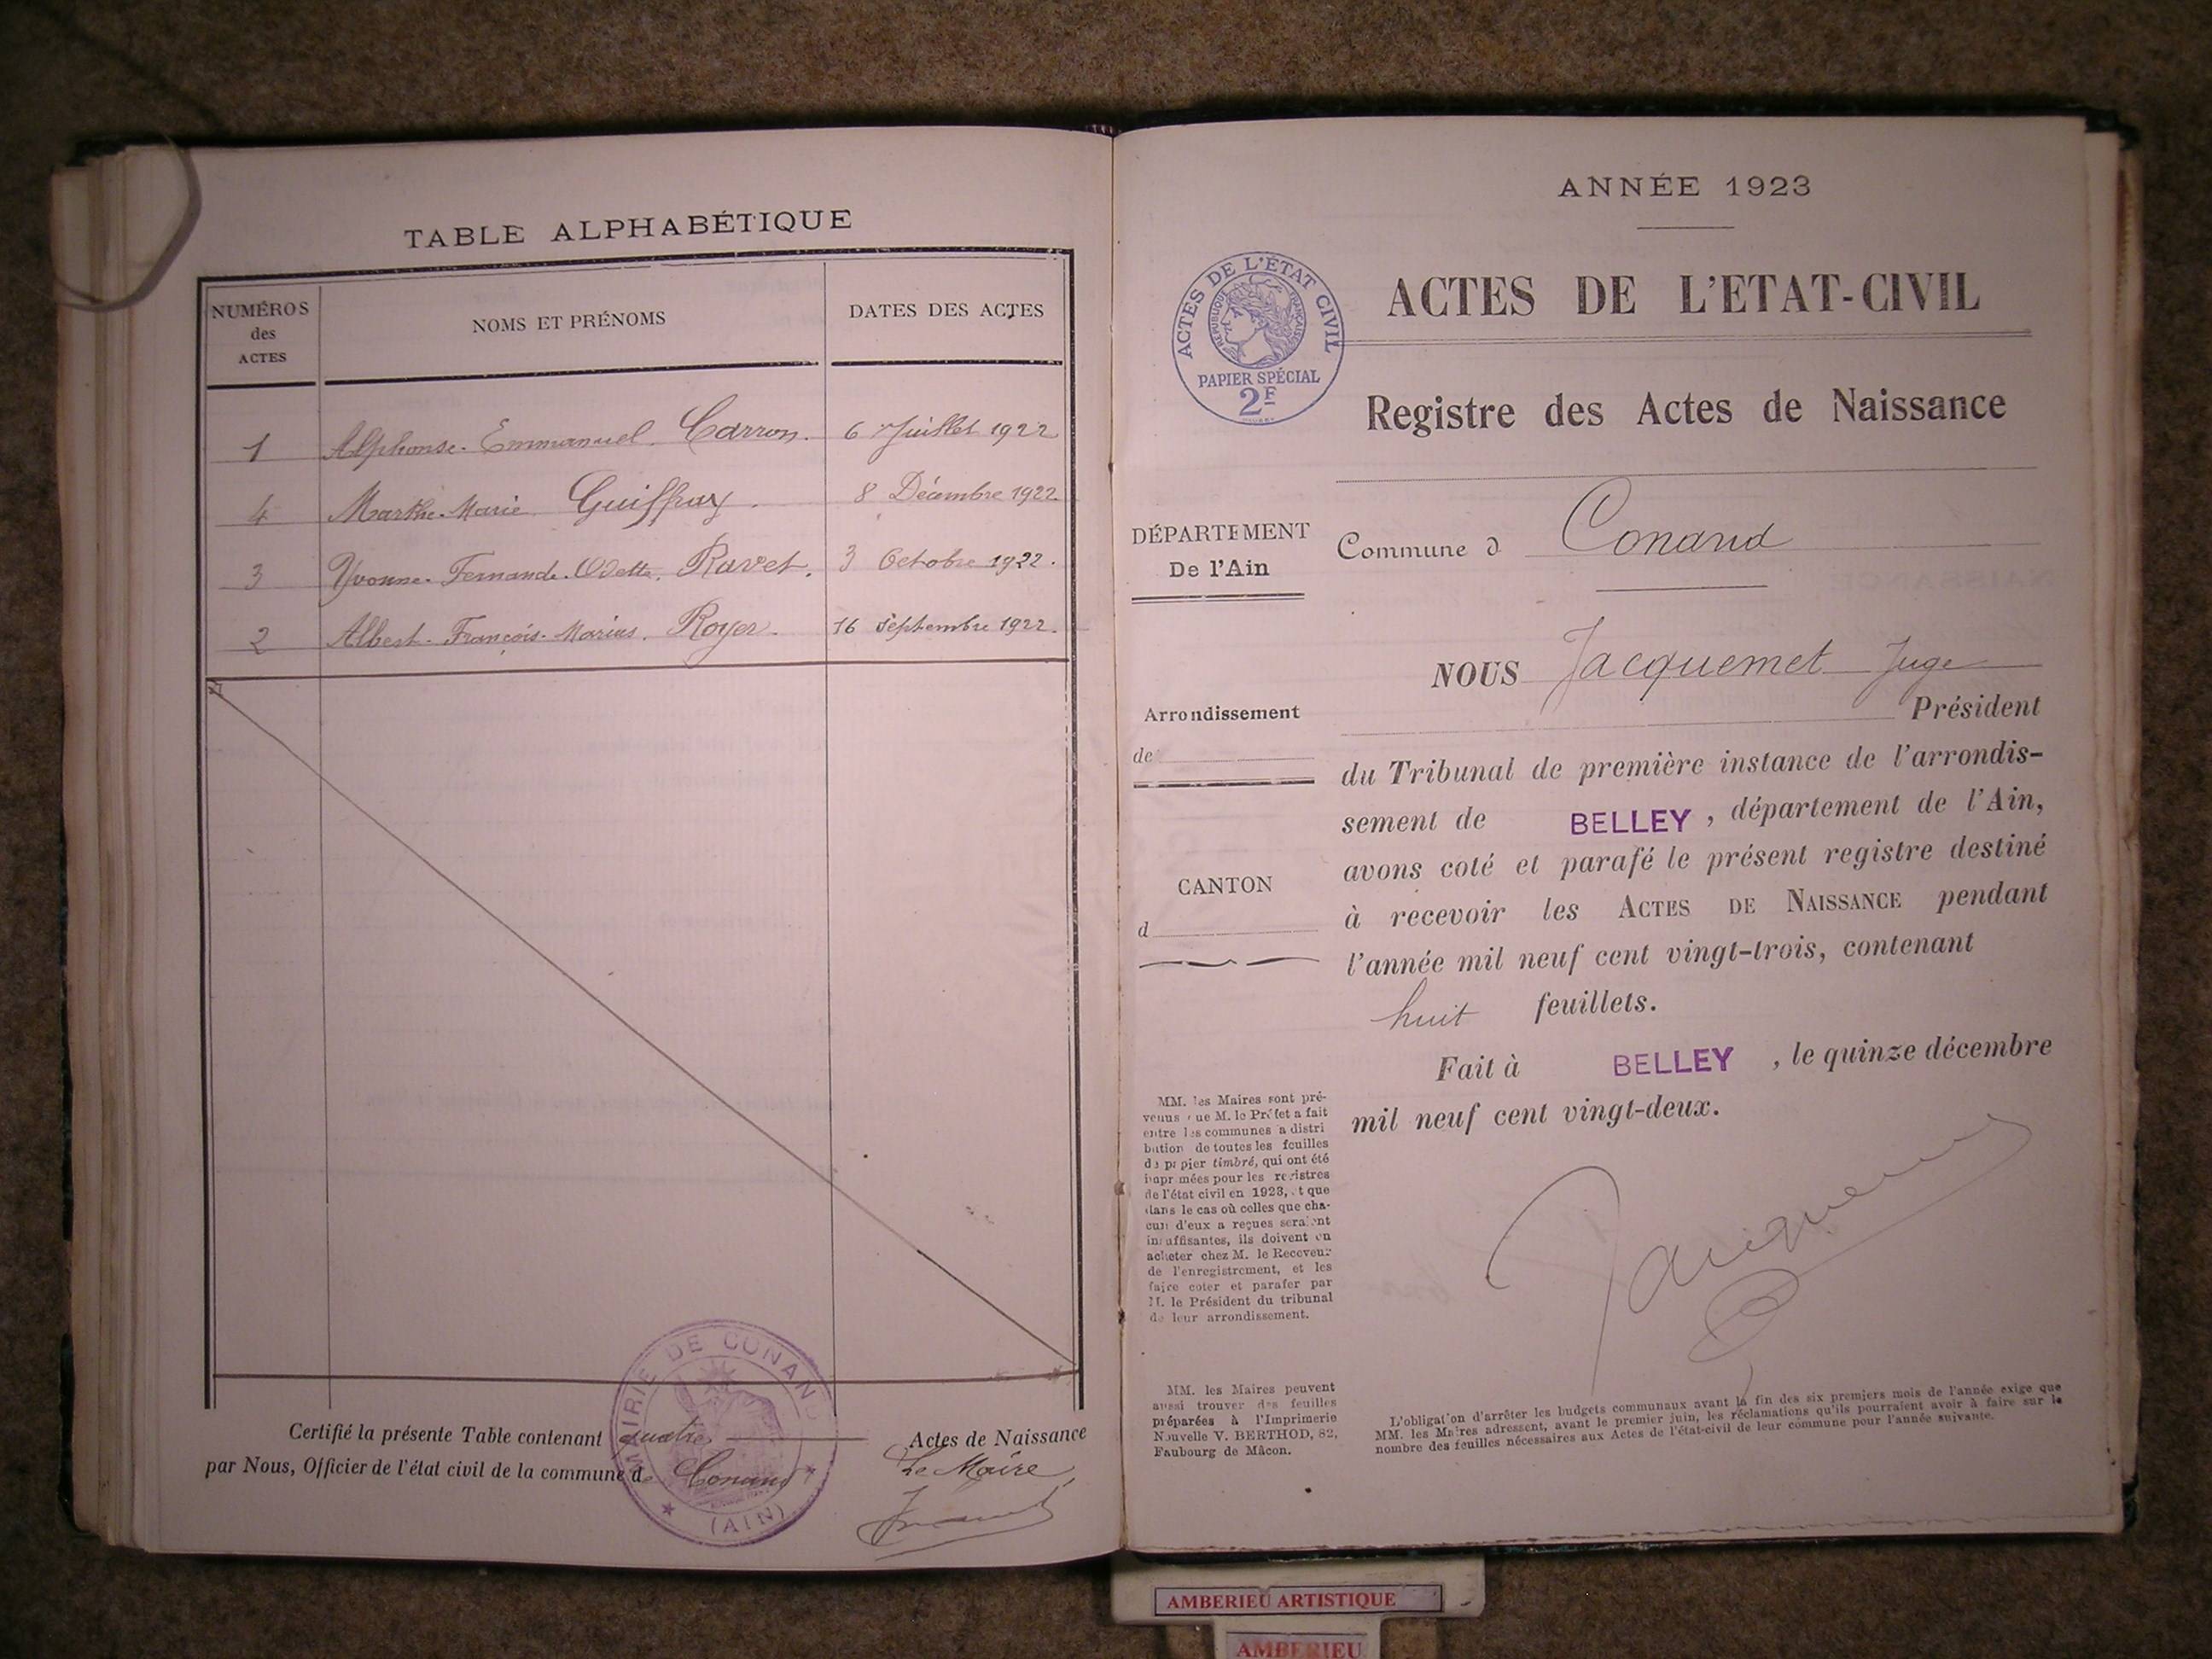 TABLE ALPHABÉTIQUE
NUMÉROS
des
ACTES
NOMS ET PRÉNOMS
DATES DES ACTES
1 Alphonse-Emmanuel. Carron. 6 Juillet 1922
4 Marthe-Marie Guiffray. 8 Décembre 1922
3 Yvonne-Fernande-Odette. Ravet. 3 Octobre 1922.
2 Albert-François-Marius. Royer. 16 Septembre 1922.
Certifié la présente Table contenant quatre Actes de Naissance
par Nous, Officier de l'état civil de la commune de Conand
Le Maire,
MAIRIE DE CONAND
(AIN)
ANNÉE 1923
ACTES DE L'ÉTAT CIVIL
RÉPUBLIQUE FRANÇAISE
PAPIER SPÉCIAL
2F
ACTES DE L'ETAT-CIVIL
Registre des Actes de Naissance
DÉPARTEMENT
De l'Ain
Commune d Conand
NOUS Jacquemet Juge
Président
Arrondissement
de
du Tribunal de première instance de l'arrondis-
sement de BELLEY, département de l'Ain,
avons coté et parafé le présent registre destiné
CANTON
d
à recevoir les ACTES DE NAISSANCE pendant
l'année mil neuf cent vingt-trois, contenant
huit feuillets.
Fait à BELLEY, le quinze décembre
mil neuf cent vingt-deux.
Jacquemet
MM. les Maires sont pré-
venus que M. le Préfet a fait
entre les communes a distri
bution de toutes les feuilles
du papier timbré, qui ont été
imprimées pour les registres
de l'état civil en 1923, et que
dans le cas où celles que cha-
cun d'eux a reçues seraient
insuffisantes, ils doivent en
acheter chez M. le Receveur
de l'enregistrement, et les
faire coter et parafer par
M. le Président du tribunal
de leur arrondissement.
MM. les Maires peuvent
aussi trouver des feuilles
préparées à l'Imprimerie
Nouvelle V. BERTHOD, 82,
Faubourg de Mâcon.
L'obligation d'arrêter les budgets communaux avant la fin des six premiers mois de l'année exige que
MM. les Maires adressent, avant le premier juin, les réclamations qu'ils pourraient avoir à faire sur le
nombre des feuilles nécessaires aux Actes de l'état-civil de leur commune pour l'année suivante.
AMBERIEU ARTISTIQUE
AMBERIEU